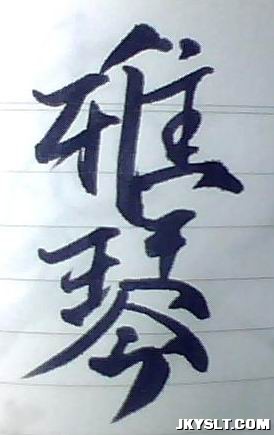 雅琴
JKYSLT.COM